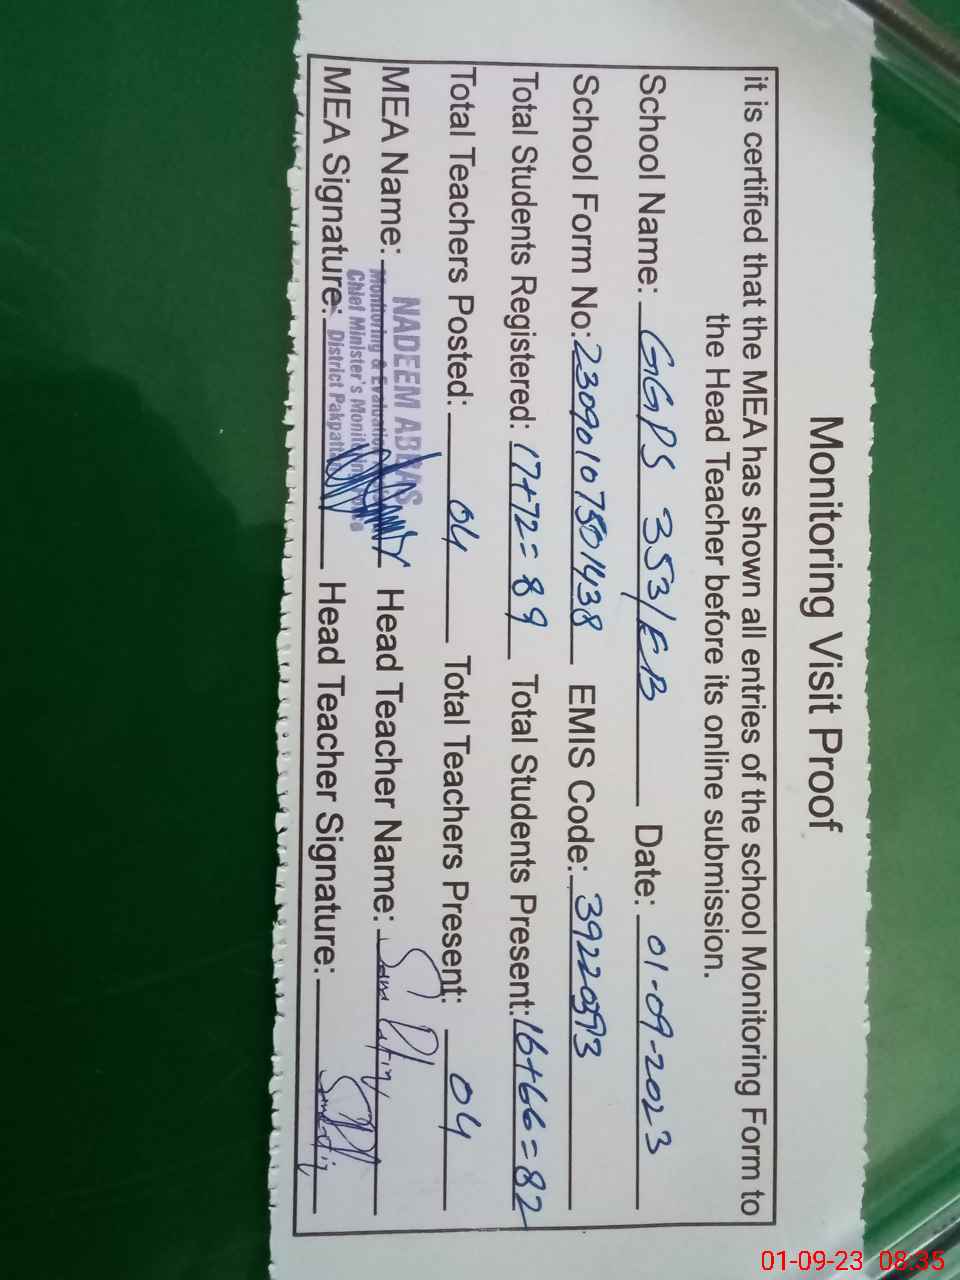 Monitoring Visit Proof
it is certified that the MEA has shown all entries of the school Monitoring Form to
the Head Teacher before its online submission.
School Name: GGPS 353/EB Date: 01-09-2023
School Form No: 23090107501438 EMIS Code: 39220393
Total Students Registered: 17+72=89 Total Students Present: 16+66=82
Total Teachers Posted: 04 Total Teachers Present: 04
MEA Name: NADEEM ABBAS Head Teacher Name:
Monitoring & Evaluation
Chief Minister's Monitoring
District Pakpattan
MEA Signature: Head Teacher Signature:
01-09-23 08:35